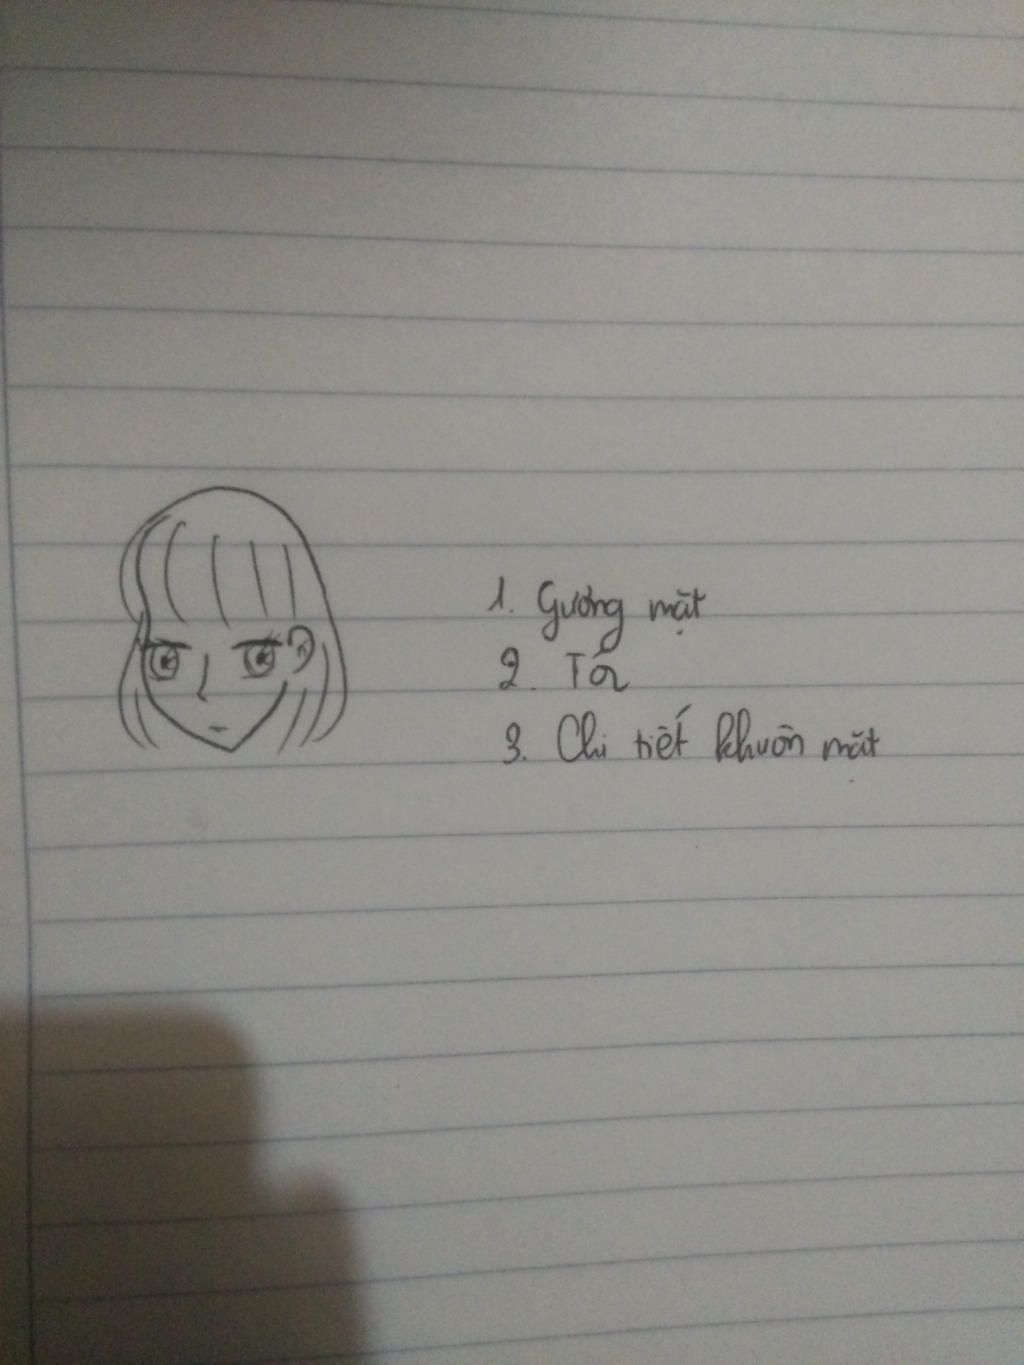 1. Gương mặt
2. Tóc
3. Chi tiết khuôn mặt